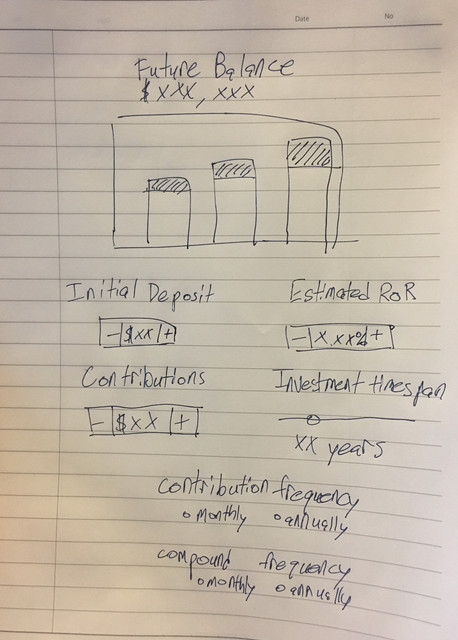 Date No
Future Balance
$ xxx, xxx
Initial Deposit Estimated RoR
- $xx + - x.xx% +
Contributions Investment timespan
- $xx +
xx years
contribution frequency
monthly annually
compound frequency
monthly annually